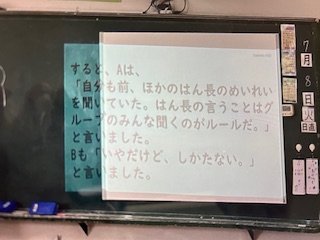 すると、Aは、
「自分も前、ほかのはん長のめいれい
を聞いていた。はん長の言うことはグ
ループのみんな聞くのがルールだ。」
と言いました。
Bも「いやだけど、しかたない。」
と言いました。
7
月
8
日
火
日直